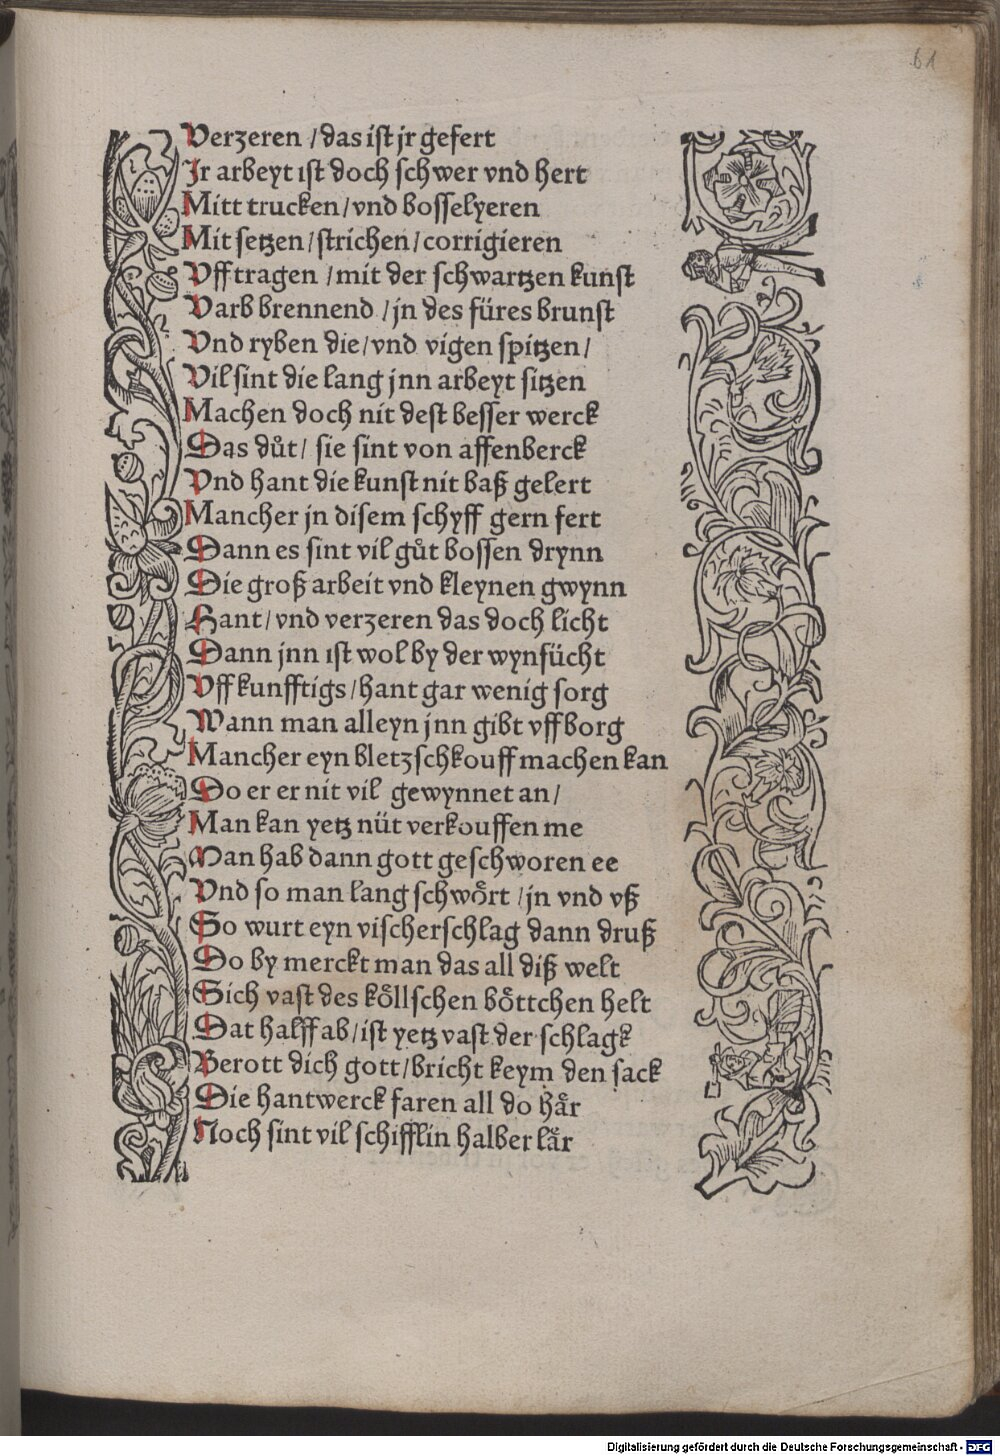 61
Verzeren /das ist jr gefert
Ir arbeyt ist doch schwer vnd hert
Mitt trucken/vnd bosselyeren
Mit setzen/strichen/corrigieren
Vfftragen /mit der schwartzen kunst
Varb brennend /jn des füres brunst
Vnd ryben die/vnd vigen spitzen/
Vil sint die lang jnn arbeyt sitzen
Machen doch nit dest besser werck
Das důt/ sie sint von affenberck
Vnd hant die kunst nit baß gelert
Mancher jn disem schyff gern fert
Dann es sint vil gůt bossen drynn
Die groß arbeit vnd kleynen gwynn
Hant/vnd verzeren das doch licht
Dann jnn ist wol by der wynfücht
Vff kunfftigs/hant gar wenig sorg
Wann man alleyn jnn gibt vff borg
Mancher eyn bletzschkouff machen kan
Do er er nit vil gewynnet an/
Man kan yetz nüt verkouffen me
Man hab dann gott geschworen ee
Vnd so man lang schwoͤrt /jn vnd vß
So wurt eyn vischerschlag dann druß
Do by merckt man das all diß welt
Sich vast des koͤllschen boͤttchen helt
Dat halff ab/ist yetz vast der schlagk
Berott dich gott/bricht keym den sack
Die hantwerck faren all do haͤr
Noch sint vil schifflin halber laͤr
Digitalisierung gefördert durch die Deutsche Forschungsgemeinschaft - DFG